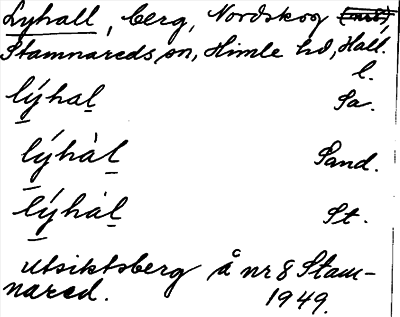 Lyhall, berg, Nordskog (nr 8),
Stamnareds sn, Himle hd, Hall.
l.
lýhal Sa.
lýhàl Sand.
lýhàl St.
utsiktsberg å nr 8 Stam-
nared. 1949.